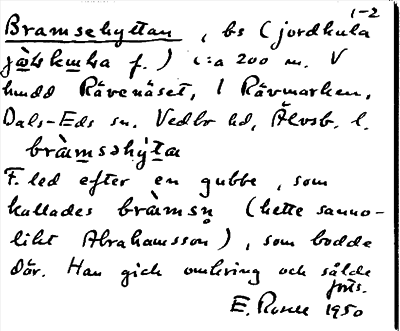 1-2
Bramsehyttan, bs (jordkula
jo̤ḷskṳḷa f.) c:a 200 m. V
hmdd Rävenäset, i Rävmarken,
Dals-Eds sn. Vedbo hd, Älvsb. l.
bràmsəhy̆ta
F. led efter en gubbe, som
kallades bràmsn̥ (hette sanno-
likt Abrahamsson), som bodde
där. Han gick omkring och sålde
forts.
E. Rosell 1950